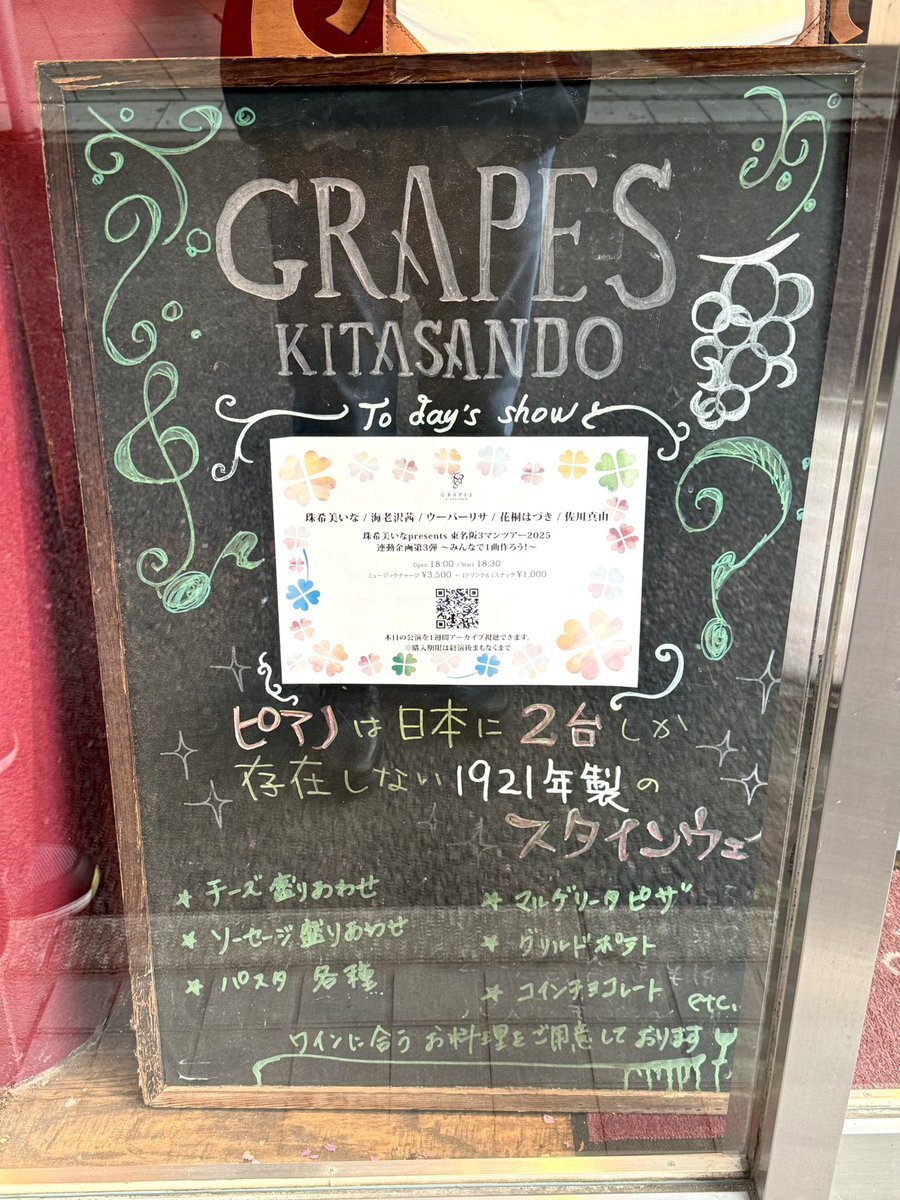 GRAPES
KITASANDO
To day's show
GRAPES
KITASANDO
珠希美いな / 海老沢茜 / ウーパーリサ / 花桐はづき / 佐川真由
珠希美いなpresents 東名阪3マンツアー2025
連動企画第3弾 〜みんなで1曲作ろう!〜
Open 18:00 / Start 18:30
ミュージックチャージ ¥3,500 + 1ドリンク&1スナック ¥1,000
本日の公演を1週間アーカイブ視聴できます。
※購入期限は終演後まもなくまで
ピアノは日本に2台しか
存在しない1921年製の
スタインウェ
★ チーズ盛りあわせ
★ ソーセージ盛りあわせ
★ パスタ 各種
★ マルゲリータピザ
★ グリルドポテト
★ コインチョコレート etc.
ワインに合うお料理をご用意しております